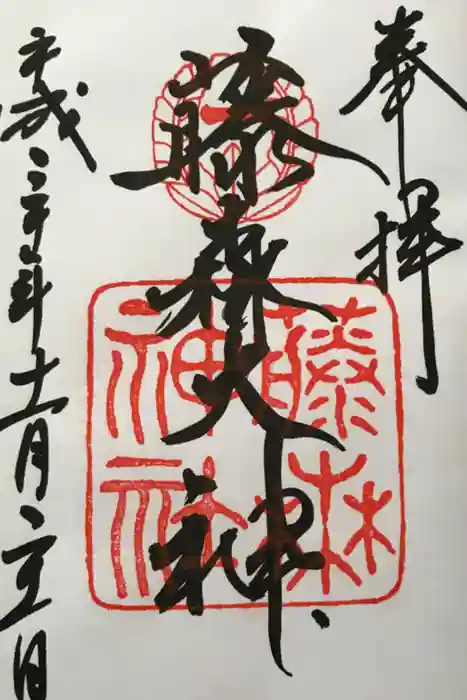 奉拝
藤森大神
藤森神社
平成二十年十一月 日